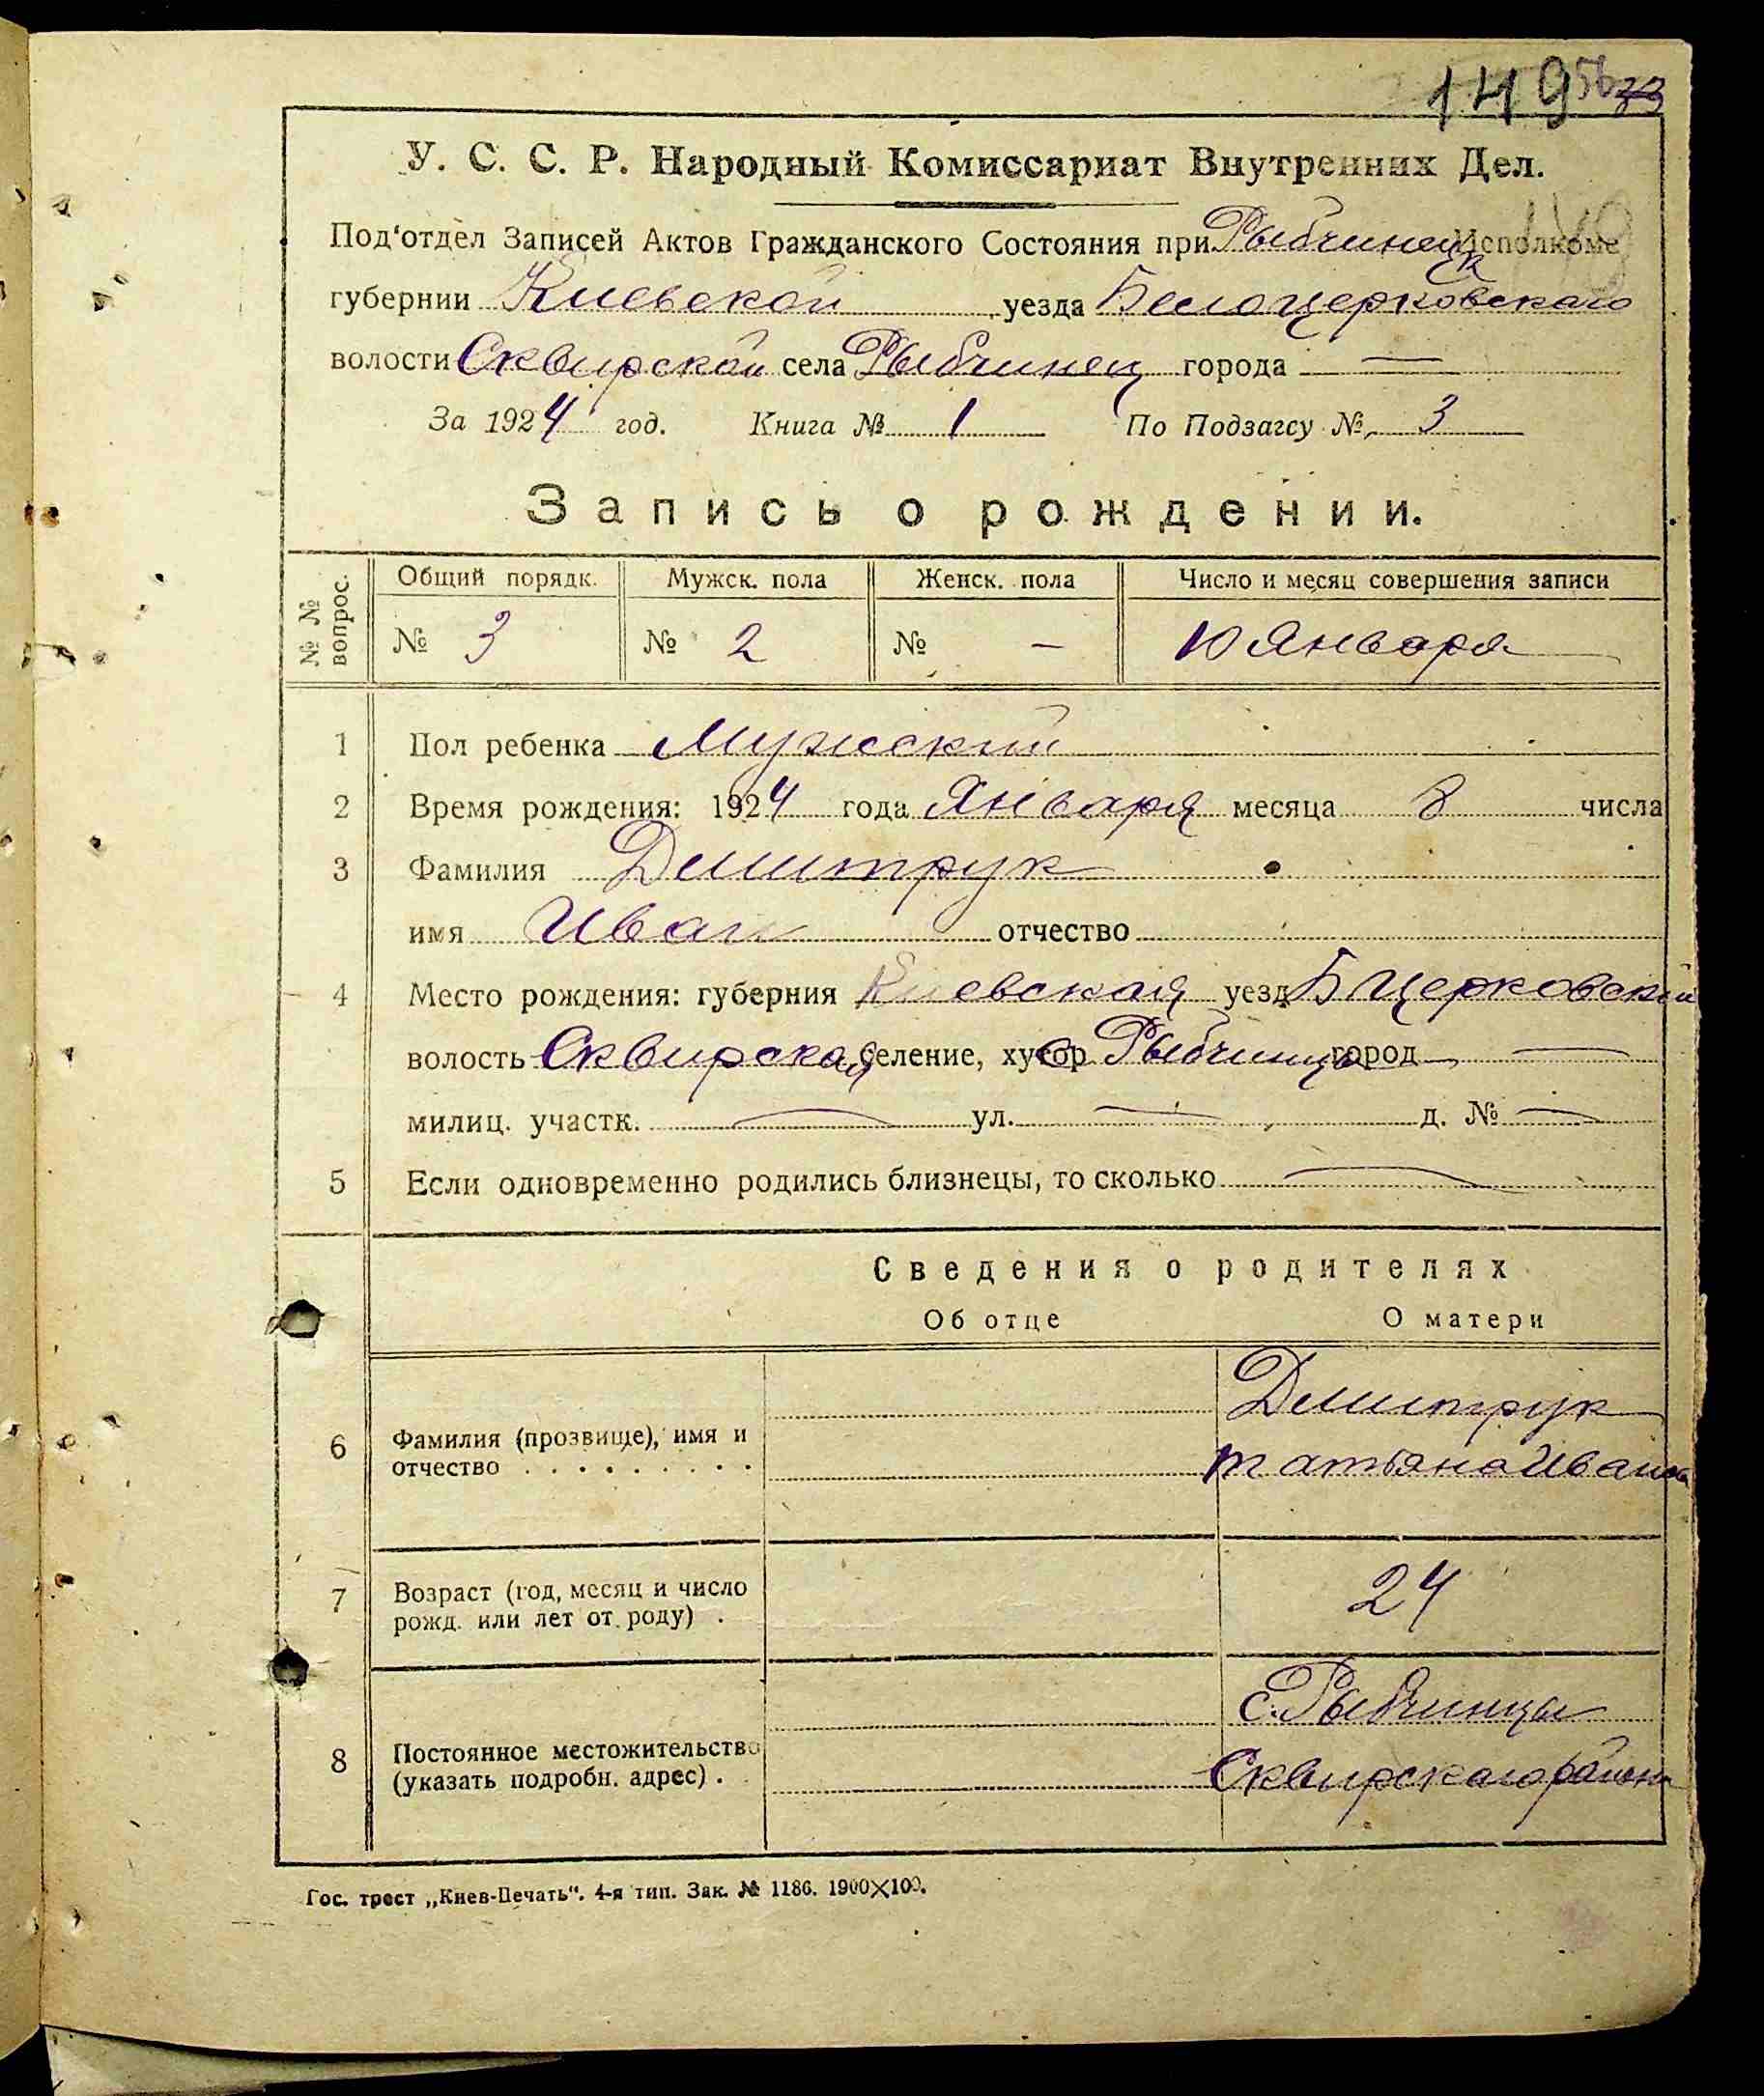 149 56 33
У. С. С. Р. Народный Комиссариат Внутренних Дел.
Под'отдел Записей Актов Гражданского Состояния при Рыбчинецк Исполкоме
губернии Киевской уезда Белоцерковскаго
волости Сквирской села Рыбчинец города —
За 1924 год. Книга № 1 По Подзагсу № 3
Запись о рождении.
№ № вопрос. Общий порядк. Мужск. пола Женск. пола Число и месяц совершения записи
№ 3 № 2 № — 10 Января
1 Пол ребенка Мужеский
2 Время рождения: 1924 года Января месяца 8 числа
3 Фамилия Демитрук
имя Иван отчество
4 Место рождения: губерния Киевская уезд БЦерковский
волость Сквирская селение, хутор с Рыбчинцы город —
милиц. участк. — ул. — д. № —
5 Если одновременно родились близнецы, то сколько —
Сведения о родителях
Об отце О матери
Демитрук
6 Фамилия (прозвище), имя и
отчество . . . . . . . . . Татьяна Иванов
7 Возраст (год, месяц и число 24
рожд. или лет от роду) .
с. Рыбчинцы
8 Постоянное местожительство
(указать подробн. адрес) . Сквирскаго района
Гос. трест „Киев-Печать“. 4-я тип. Зак. № 1186. 1900×100.